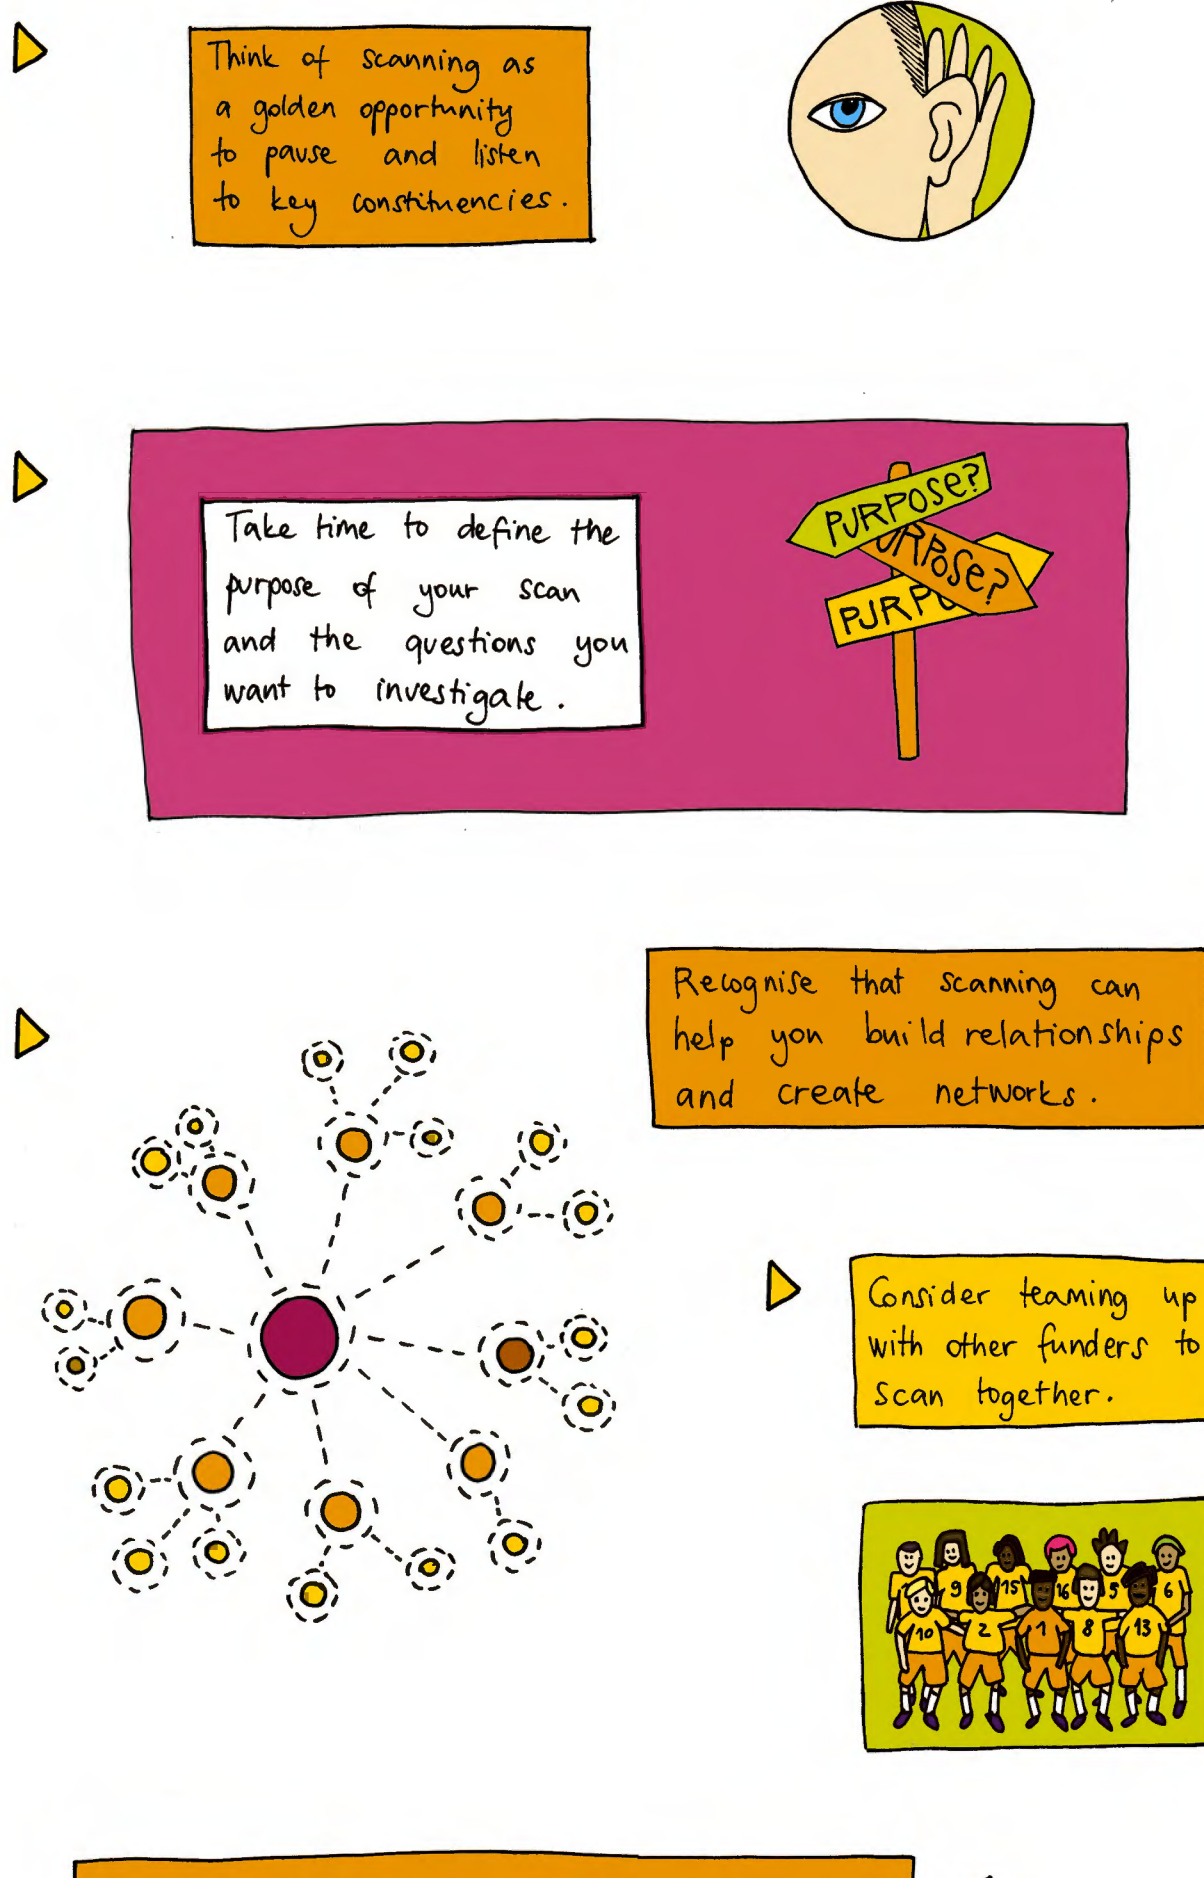 Think of scanning as
a golden opportunity
to pause and listen
to key constituencies.
PURPOSE?
URPOSE?
PURPO
Take time to define the
purpose of your scan
and the questions you
want to investigate.
Recognise that scanning can
help you build relationships
and create networks.
Consider teaming up
with other funders to
scan together.
9
15
16
5
6
10
2
1
8
13